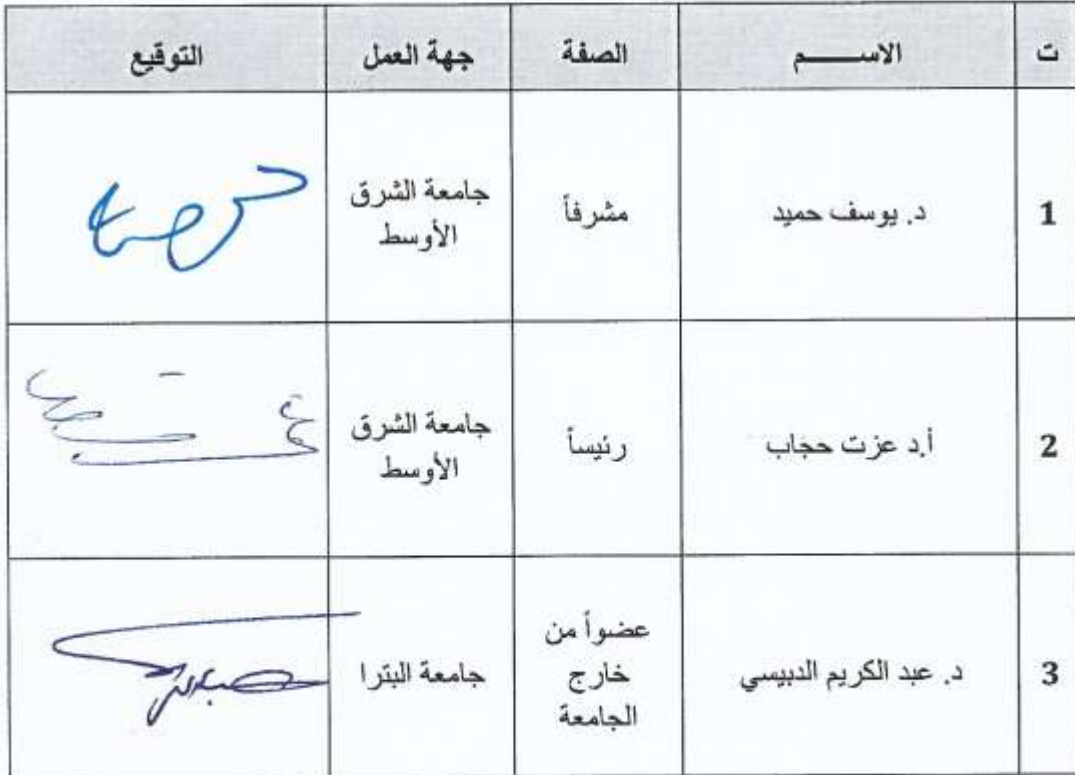 ت الاســـــم الصفة جهة العمل التوقيع
1 د. يوسف حميد مشرفاً جامعة الشرق الأوسط
2 أ.د عزت حجاب رئيساً جامعة الشرق الأوسط
3 د. عبد الكريم الدبيسي عضواً من خارج الجامعة جامعة البترا